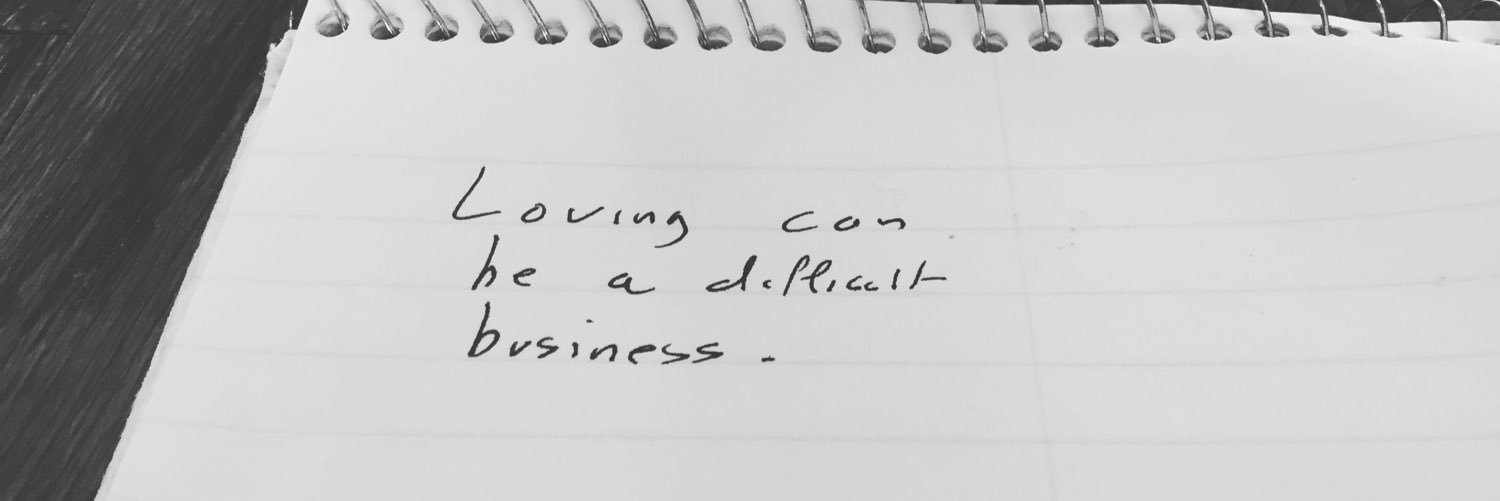 Loving can
be a difficult
business.